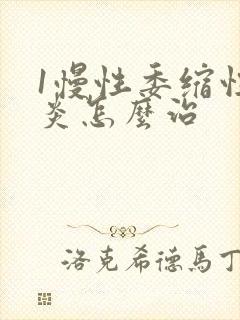 1慢性委缩性
炎怎麼治
洛克希德馬丁